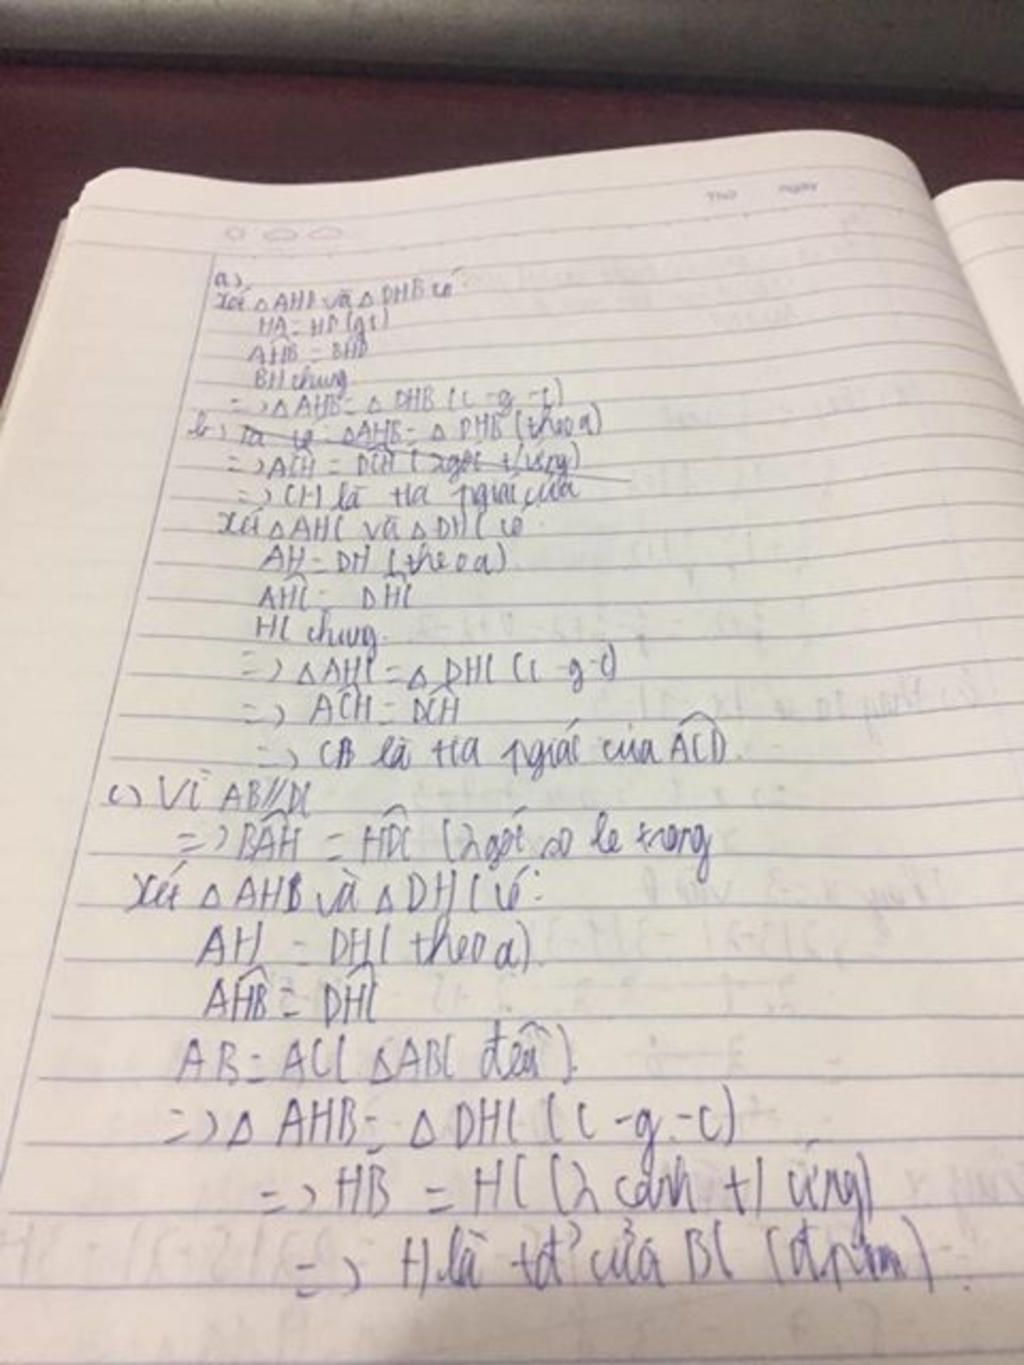 Thứ ngày
a)
Xét △AHB và △DHB có
HA = HD (gt)
AHB = BHD
BH chung
=> △AHB = △DHB (c-g-c)
b) Ta có △AHB = △DHB (theo a)
=> ACH = DCH (2 góc t/ứng)
=> CH là tia pgiác của
Xét △AHC và △DHC có
AH = DH (theo a)
AHC = DHC
HC chung.
=> △AHC = △DHC (c-g-c)
=> ACH = DCH
=> CB là tia pgiác của ACD.
c) Vì AB//DC
=> BAH = HDC (2 góc so le trong
Xét △AHB và △DHC có:
AH = DH (theo a)
AHB = DHC
AB = AC (△ABC đều).
=> △AHB = △DHC (c-g-c)
=> HB = HC (2 cạnh t/ứng)
=> H là tđ' của BC (đpcm).